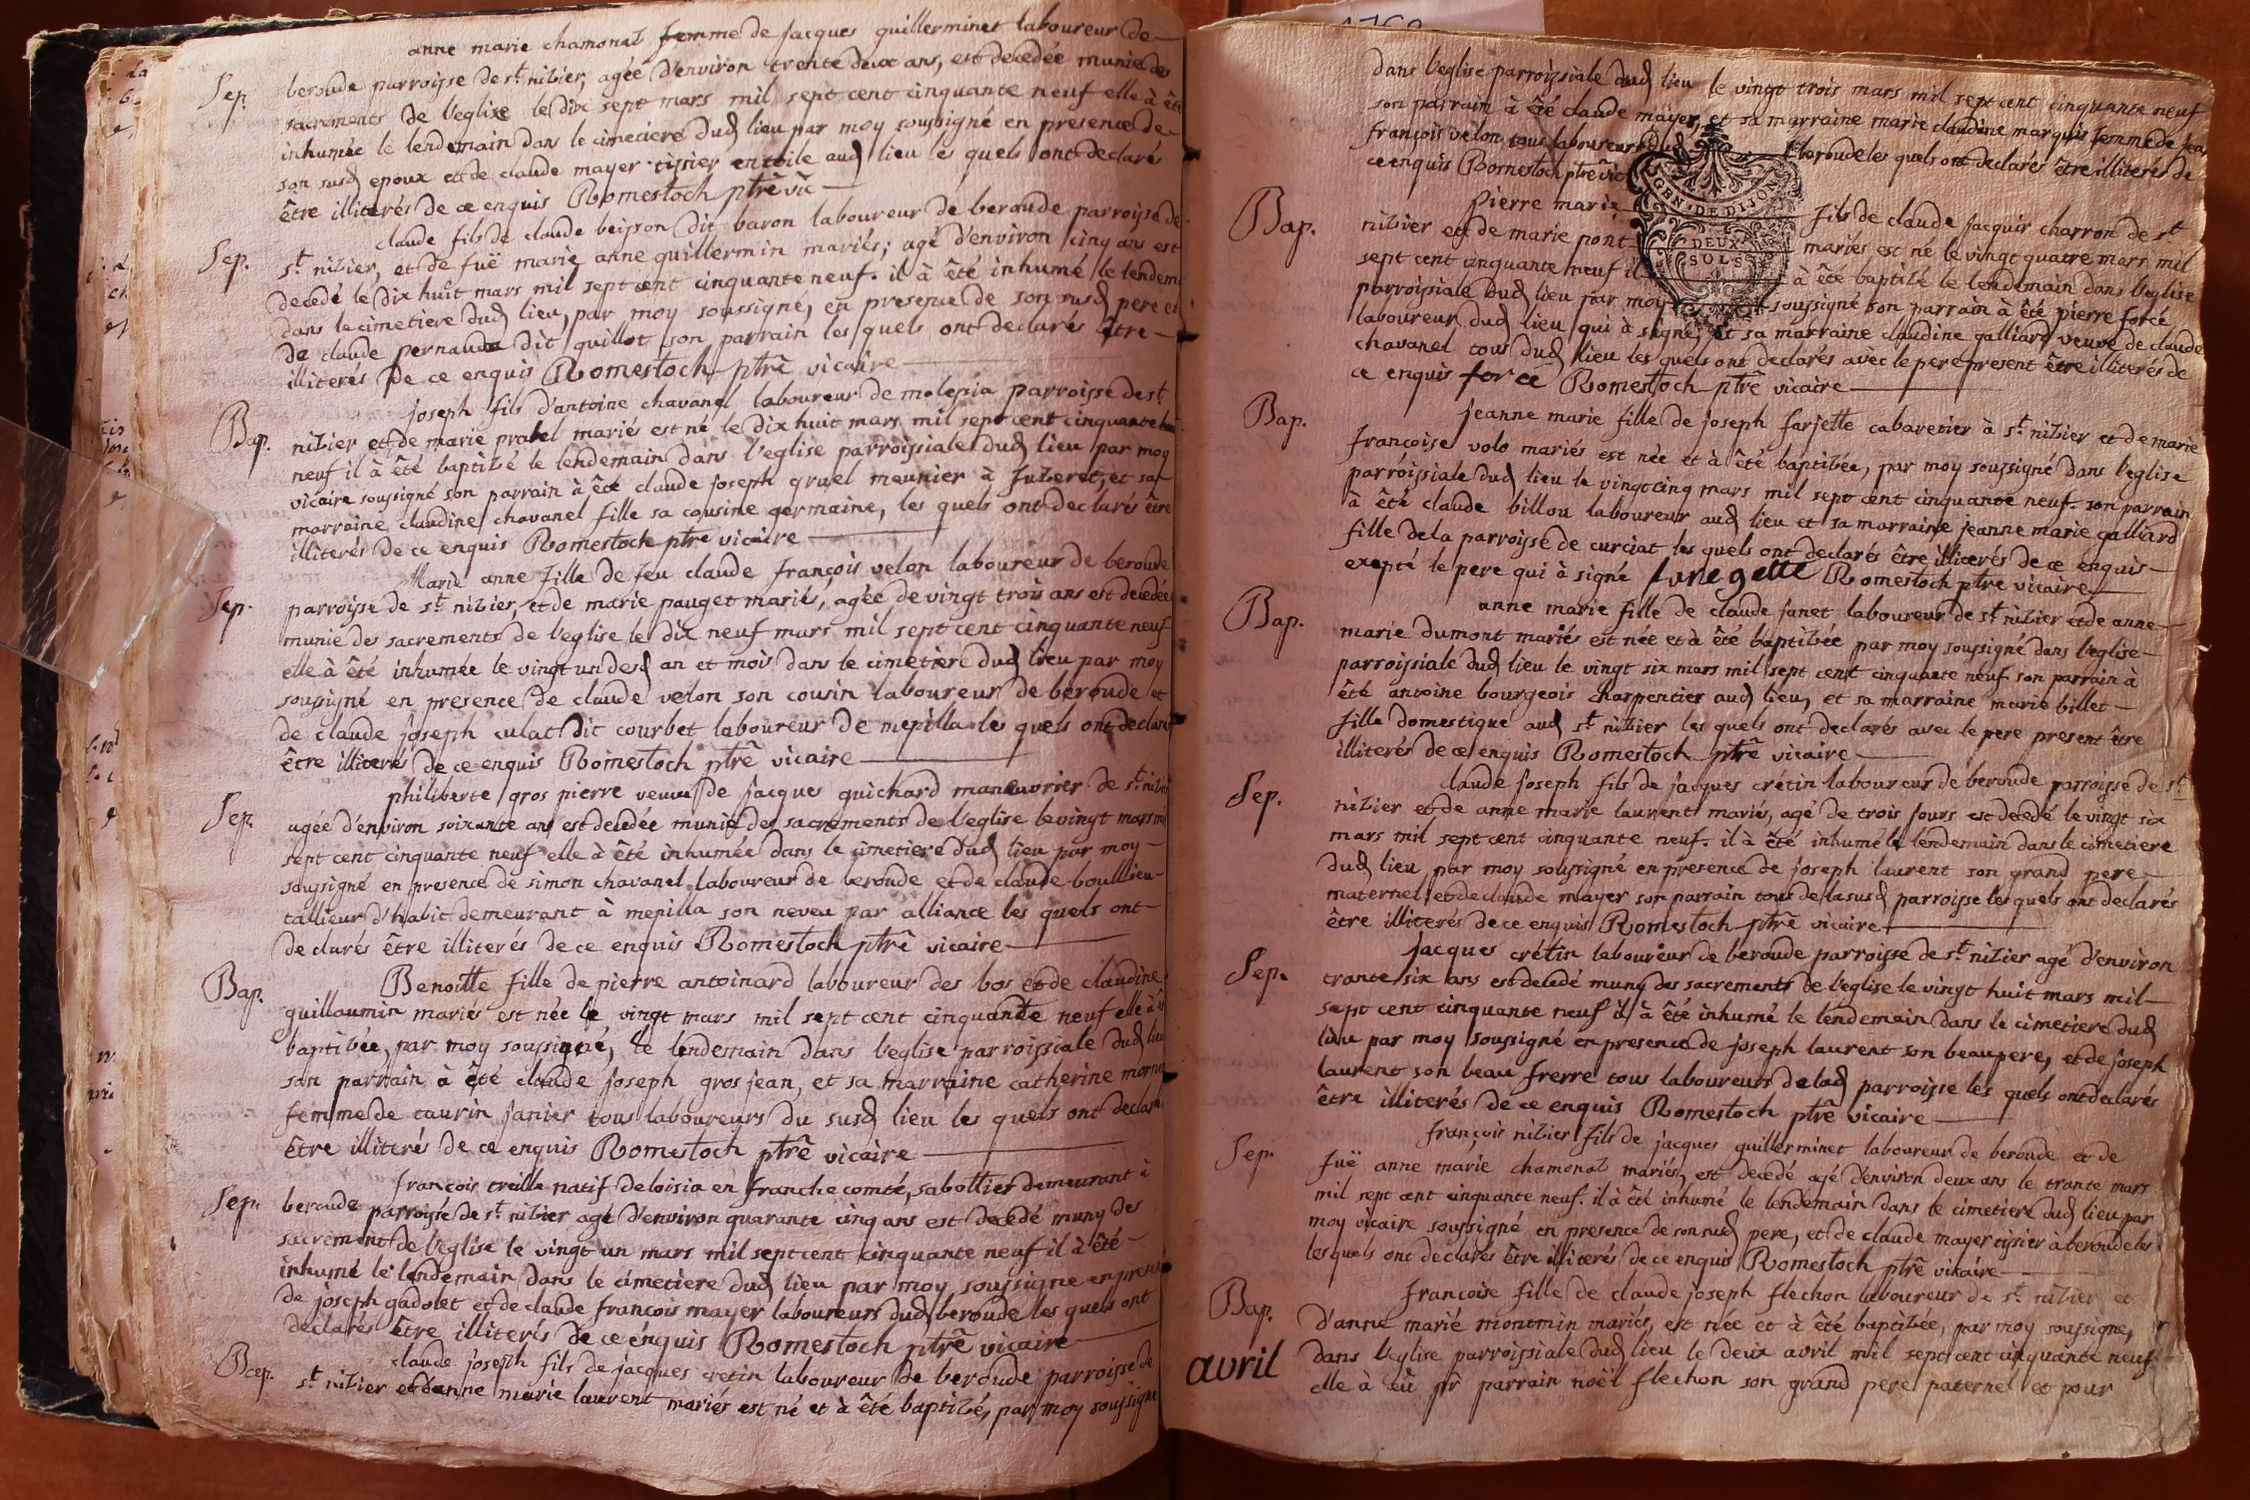 anne marie chamonal femme de jacques guillerminet laboureur de
Sep. beroude parroisse de st nizier, agée d'environ trente deux ans, est decedée munie des
sacrements de l'eglise le dix sept mars mil sept cent cinquante neuf elle à été
inhumée le lendemain dans le cimeciere dud lieu par moy soussigné en presence de
son susd epoux et de claude mayer tissier en toile aud lieu les quels ont declarés
être illiterés de ce enquis Romestoch ptre vic
claude fils de claude beisson dit baron laboureur de beroude parroisse de
Sep. st nizier, et de fuë marie anne guillermin mariés; agé d'environ cinq ans est
decedé le dix huit mars mil sept cent cinquante neuf. il à été inhumé le lendem
dans le cimetiere dud lieu, par moy soussigné, en presence de son susd pere et
de claude pernaud dit guillot son parrain les quels ont declarés être
illiterés de ce enquis Romestoch ptre vicaire
joseph fils d'antoine chavanel laboureur de molepia parroisse de st
Bap. nizier et de marie pratel mariés est né le dix huit mars mil sept cent cinquante
neuf il à été baptizé le lendemain dans l'eglise parroissiale dud lieu par moy
vicaire soussigné son parrain à été claude joseph gruel meunier à et sa
marraine claudine chavanel fille sa cousine germaine, les quels ont declarés être
illiterés de ce enquis Romestoch ptre vicaire
Marie anne fille de feu claude françois velon laboureur de beroude
Sep. parroisse de st nizier, et de marie pauget mariés, agée de vingt trois ans est decedée
munie des sacrements de l'eglise le dix neuf mars mil sept cent cinquante neuf
elle à été inhumée le vingt un desd an et mois dans le cimetiere dud lieu par moy
soussigné en presence de claude velon son cousin laboureur de beroude et
de claude joseph culat dit courbet laboureur de mepilla les quels ont declaré
être illiterés de ce enquis Romestoch ptre vicaire
philiberte gros pierre veuve de jacques guichard maneuvrier de st nizier
Sep. agée d'environ soixante ans est decedée munie des sacrements de l'eglise le vingt mars mil
sept cent cinquante neuf elle à été inhumée dans le cimetiere dud lieu par moy
soussigné en presence de simon chavanel laboureur de beroude et de claude boullieu
tallieur d'habit demeurant à mepilla son neveu par alliance les quels ont
declarés être illiterés de ce enquis Romestoch ptre vicaire
Bap. Benoitte fille de pierre antoinard laboureur des bos et de claudine
guillaumin mariés est née le vingt mars mil sept cent cinquante neuf elle à
baptizée, par moy soussigné, le lendemain dans l'eglise parroissiale dud lieu
son parrain à été claude joseph gros jean, et sa marraine catherine
femme de taurin janier tous laboureurs du susd lieu les quels ont declaré
être illiterés de ce enquis Romestoch ptre vicaire
françois treille natif de loisia en franche comté, sabottier demeurant à
Sep. beroude parroisse de st nizier agé d'environ quarante cinq ans est decedé muny des
sacrement de l'eglise le vingt un mars mil sept cent cinquante neuf il à été
inhumé le lendemain dans le cimetiere dud lieu par moy soussigné en presen
de joseph gadolet et de claude françois mayer laboureurs dud beroude les quels ont
declarés être illiterés de ce enquis Romestoch ptre vicaire
claude joseph fils de jacques cretin laboureur de beroude parroisse de
Bap. st nizier et danne marie laurent mariés est né et à été baptizé, par moy soussigné
dans l'eglise parroissiale dud lieu le vingt trois mars mil sept cent cinquante neuf
son parrain à été claude mayer, et sa marraine marie claudine marquis femme de jean
françois velon tous laboureurs dud beroude les quels ont declarés être illiterés de
ce enquis Romestoch ptre vic
GEN. DE DIJON
DEUX
SOLS
Bap. Pierre marie fils de claude jacquis charron de st
nizier et de marie pont mariés est né le vingt quatre mars mil
sept cent cinquante neuf il à été baptizé le lendemain dans l'eglise
parroissiale dud lieu par moy soussigné son parrain à été pierre forcé
laboureur dud lieu qui à signé, et sa marraine claudine galliard veuve de claude
chavanel tous dud lieu les quels ont declarés avec le pere present être illiterés de
ce enquis forcé Romestoch ptre vicaire
Bap. jeanne marie fille de joseph farjette cabaretier à st nizier et de marie
françoise volo mariés est née et à été baptizée, par moy soussigné dans l'eglise
parroissiale dud lieu le vingt cinq mars mil sept cent cinquante neuf. son parrain
à été claude billou laboureur aud lieu et sa marraine jeanne marie galliard
fille de la parroisse de curciat les quels ont declarés être illiterés de ce enquis
exepté le pere qui à signé Romestoch ptre vicaire
Bap. anne marie fille de claude janet laboureur de st nizier et de anne
marie dumont mariés est née et à été baptizée par moy soussigné dans l'eglise
parroissiale dud lieu le vingt six mars mil sept cent cinquante neuf son parrain à
été antoine bourgeois charpentier aud lieu, et sa marraine marie billet
fille domestique aud st nizier les quels ont declarés avec le pere present être
illiterés de ce enquis Romestoch ptre vicaire
Sep. claude joseph fils de jacques crétin laboureur de beroude parroisse de st
nizier et de anne marie laurent mariés, agé de trois jours est decedé le vingt six
mars mil sept cent cinquante neuf. il à été inhumé le lendemain dans le cimetiere
dud lieu par moy soussigné en presence de joseph laurent son grand pere
maternel et de claude mayer son parrain tous de la susd parroisse les quels ont declarés
être illiterés de ce enquis Romestoch ptre vicaire
Sep. jacques crétin laboureur de beroude parroisse de st nizier agé d'environ
trante six ans est decedé muny des sacrements de l'eglise le vingt huit mars mil
sept cent cinquante neuf il à été inhumé le lendemain dans le cimetiere dud
lieu par moy soussigné en presence de joseph laurent son beaupere, et de joseph
laurent son beau frerre tous laboureurs de lad parroisse les quels ont declarés
être illiterés de ce enquis Romestoch ptre vicaire
Sep. françois nizier fils de jacques guillerminet laboureur de beroude et de
fuë anne marie chamonal mariés, est decedé agé d'environ deux ans le trante mars
mil sept cent cinquante neuf. il à été inhumé le lendemain dans le cimetiere dud lieu par
moy vicaire soussigné en presence de son susd pere, et de claude mayer tissier à beroude les
les quels ont declarés être illiterés de ce enquis Romestoch ptre vicaire
Bap. françoise fille de claude joseph flechon laboureur de st nizier et
d'anne marie montmin mariés, est née et à été baptizée, par moy soussigné,
avril dans l'eglise parroissiale dud lieu le deux avril mil sept cent cinquante neuf
elle à eû pr parrain noël flechon son grand pere paternel et pour